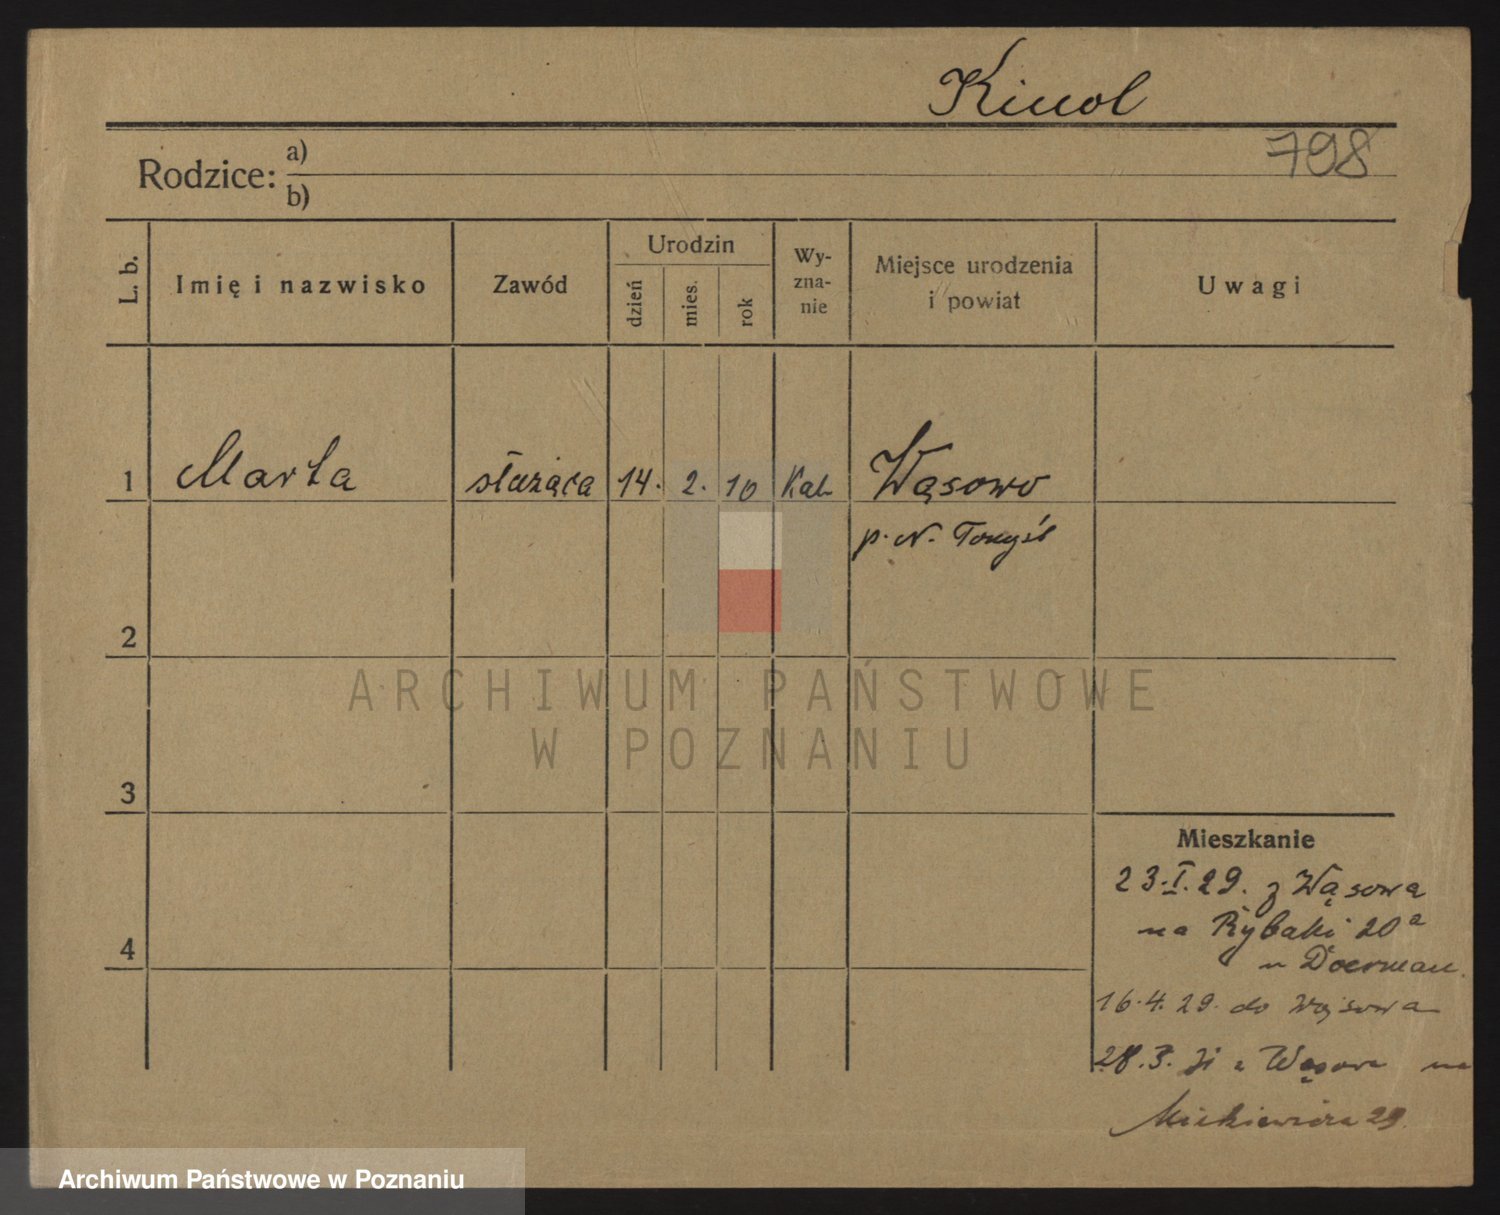 Kinol
798
Rodzice: a)
b)
L. b.
Imię i nazwisko
Zawód
Urodzin
dzień
mies.
rok
Wy-
zna-
nie
Miejsce urodzenia
i powiat
Uwagi
1 Marta służąca 14. 2. 10 Kat. Wąsowo
p. N. Tomyśl
2
3
4
Mieszkanie
23.I.29. z Wąsowa
na Rybaki 20a
u
16.4.29. do Wąsowa
28.3. z Wąsowa na
Mickiewicza 29.
ARCHIWUM PAŃSTWOWE
W POZNANIU
Archiwum Państwowe w Poznaniu